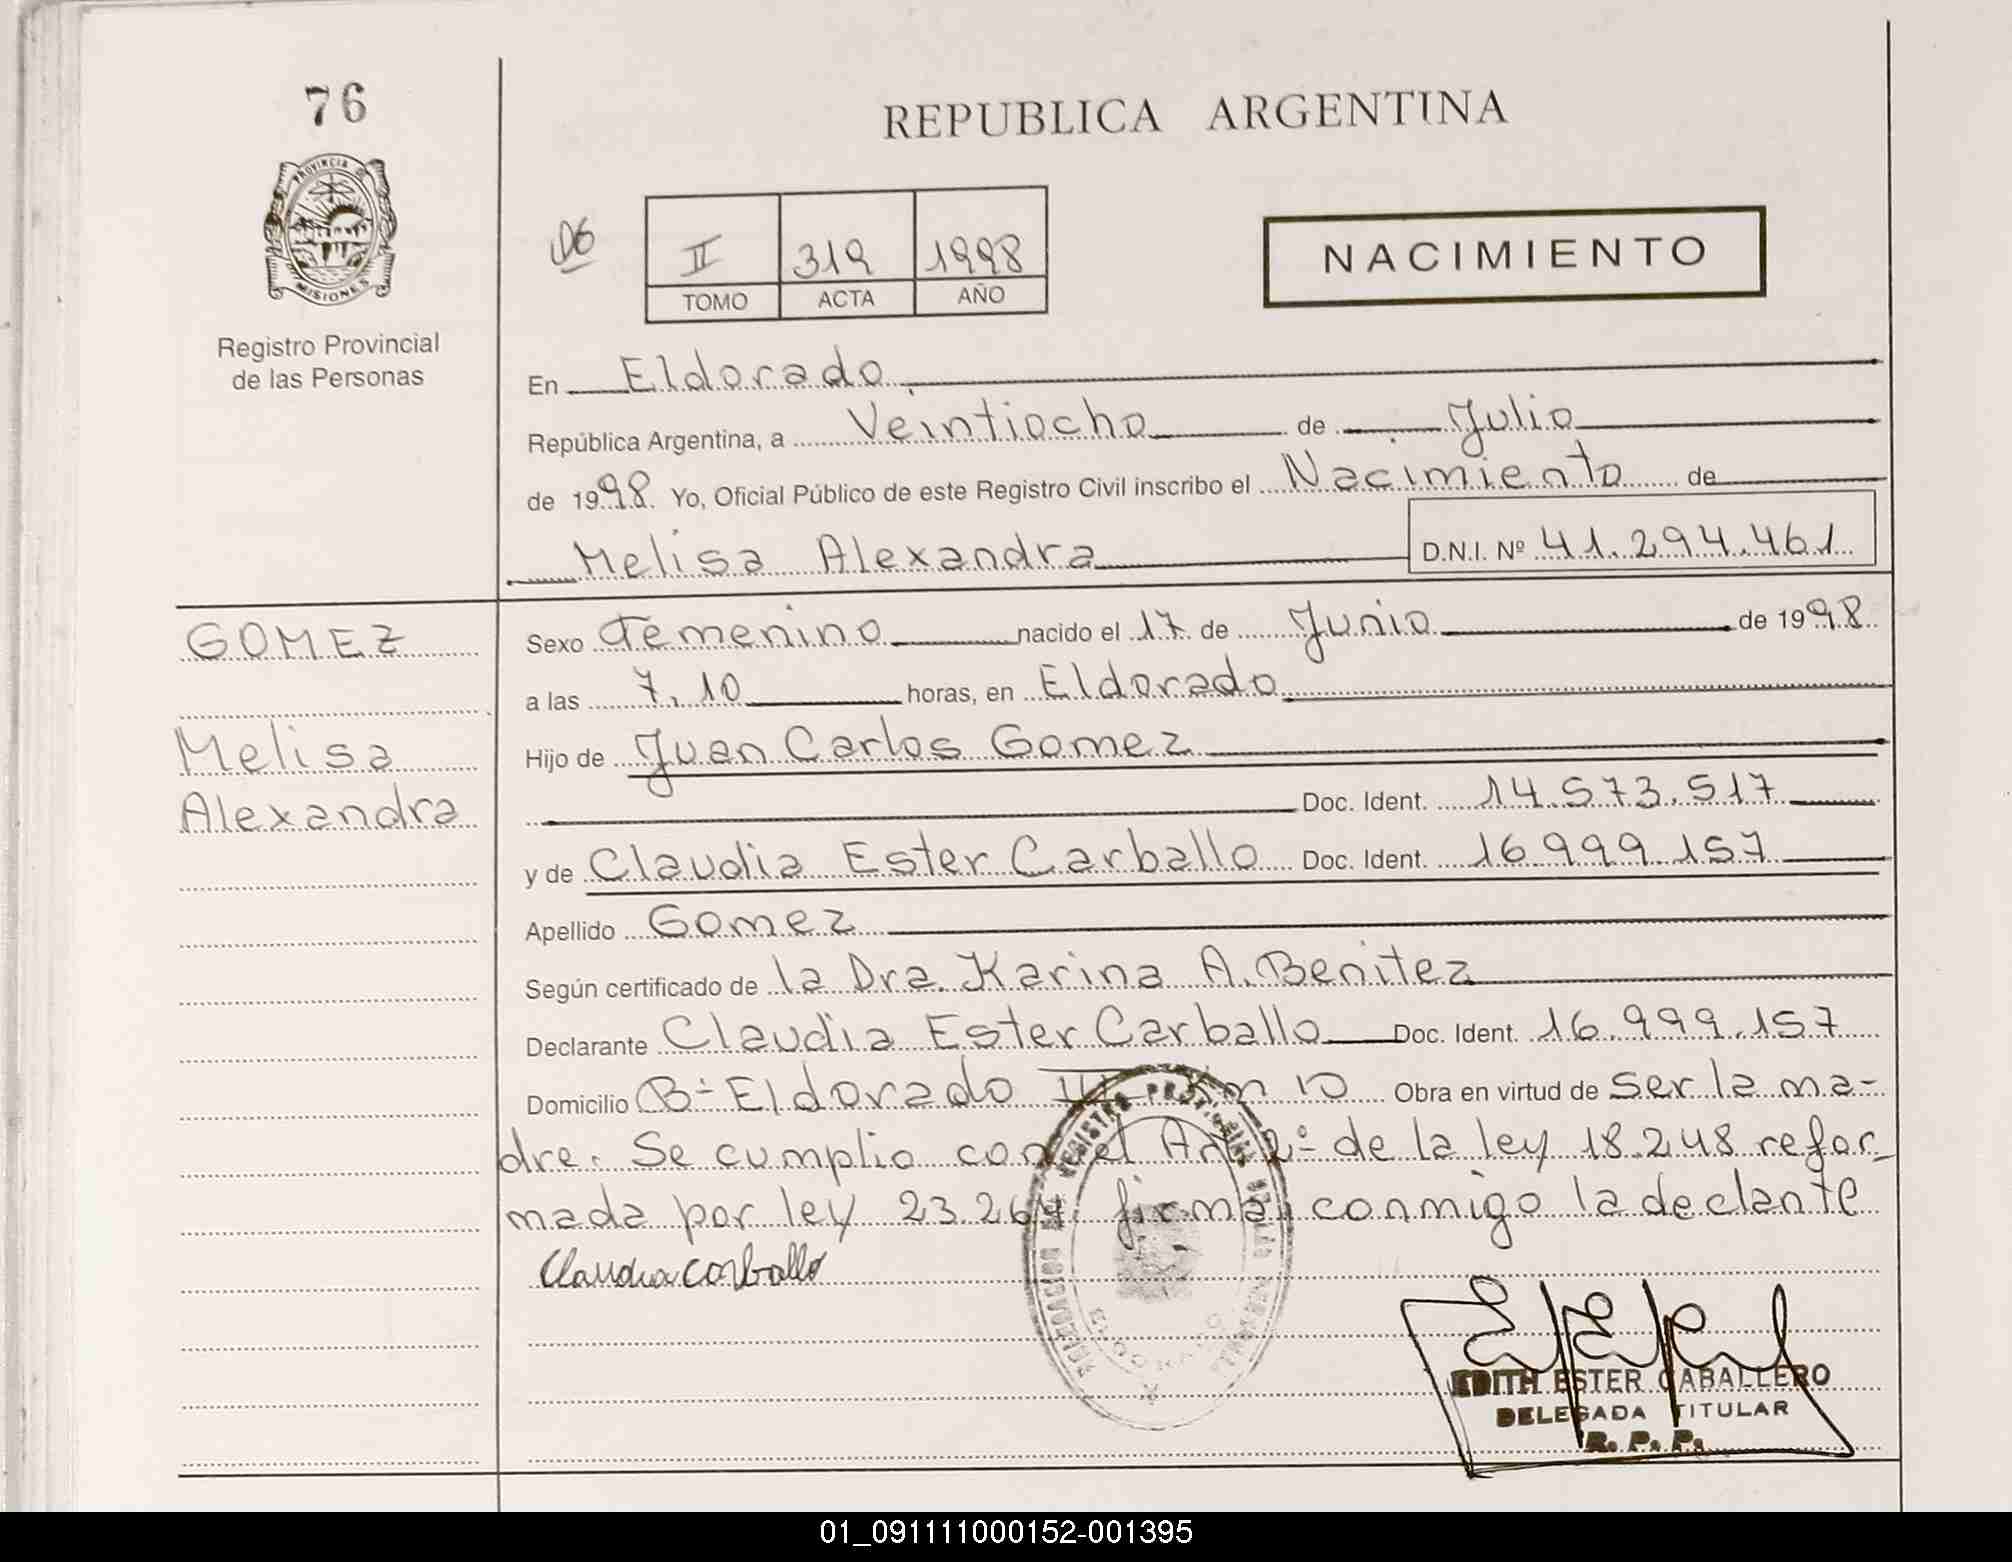 76
REPUBLICA ARGENTINA
PROVINCIA DE
MISIONES
Registro Provincial
de las Personas
06
II 319 1998
TOMO ACTA AÑO
NACIMIENTO
En Eldorado
República Argentina, a Veintiocho de Julio
de 1998. Yo, Oficial Público de este Registro Civil inscribo el Nacimiento de
Melisa Alexandra D.N.I. Nº 41.294.461
GOMEZ
Melisa
Alexandra
Sexo Femenino nacido el 17 de Junio de 1998
a las 7.10 horas, en Eldorado
Hijo de Juan Carlos Gomez
Doc. Ident. 14.573.517
y de Claudia Ester Carballo Doc. Ident. 16.999.157
Apellido Gomez
Según certificado de la Dra. Karina A. Benitez
Declarante Claudia Ester Carballo Doc. Ident. 16.999.157
Domicilio Bº Eldorado III Km 10 Obra en virtud de ser la ma-
dre. Se cumplio con el Art 2º de la ley 18.248 refor-
mada por ley 23.264 firma conmigo la declante
Claudia Carballo
REGISTRO PROVINCIAL
ELDORADO
EDITH ESTER CABALLERO
DELEGADA TITULAR
R. P. P.
01_091111000152-001395